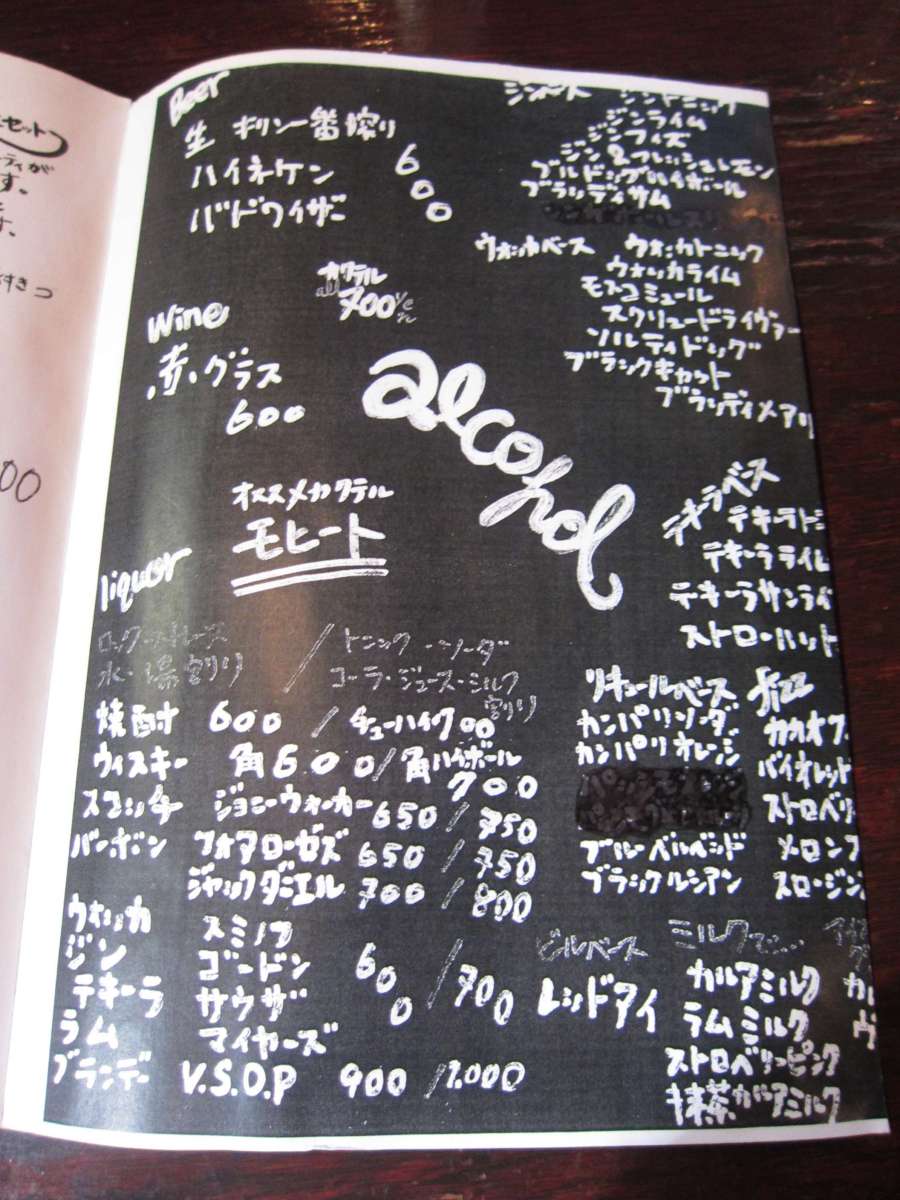 セット
ティが
す。
す。
付きつ
00
Beer
生 キリン一番搾り
ハイネケン
バドワイザー
600
カクテル
all 700
Wine
赤・グラス
600
alcohol
オススメカクテル
モヒート
liquor
ロック・ストレート
水・湯割り
/トニック・ソーダ
コーラ・ジュース・ミルク
割り
焼酎 600 / チューハイ700
ウィスキー 角600/角ハイボール
700
スコッチ ジョニーウォーカー 650/750
バーボン フォアローゼズ 650/750
ジャックダニエル 700/800
ウオッカ スミノフ
ジン ゴードン
テキーラ サウザ
ラム マイヤーズ
600/700
ブランデー V.S.O.P 900/1.000
ジンベース ジントニック
ジンライム
ジンフィズ
ジン&フレッシュレモン
ブルドッグハイボール
ブランディサム
ウオッカベース ウオッカトニック
ウオッカライム
モスコミュール
スクリュードライヴァー
ソルティドッグ
ブラックキャット
ブラッディメアリ
テキーラベース
テキーラト
テキーラライム
テキーラサンライ
ストローハット
リキュールベース
カンパリソーダ
カンパリオレンジ
ブルーベルベッド
ブラックルシアン
fizz
カカオフ
バイオレット
ストロベリ
メロンフ
スロージン
ビルベース
レッドアイ
ミルクで…
カルアミルク
ラムミルク
ストロベリーピンク
抹茶カルアミルク